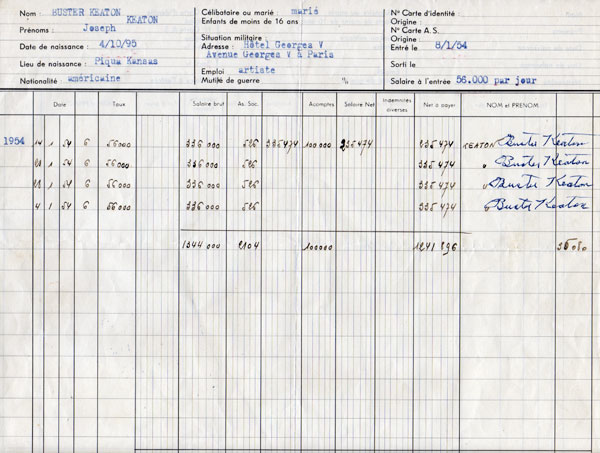 Nom : BUSTER KEATON
KEATON
Prénoms : Joseph
Date de naissance : 4/10/95
Lieu de naissance : Piqua Kansas
Nationalité américaine
Célibataire ou marié : marié
Enfants de moins de 16 ans
Situation militaire :
Adresse : Hôtel Georges V
Avenue Georges V à Paris
Emploi artiste
Mutilé de guerre %
N° Carte d'identité :
Origine :
N° Carte A. S.
Origine :
Entré le 8/1/54
Sorti le
Salaire à l'entrée 56.000 par jour
Date Taux Salaire brut As. Soc. Acomptes Salaire Net Indemnités diverses Net à payer NOM et PRENOM
1954 14 1 54 6 56000 336 000 526 335474 100 000 235 474 235 474 KEATON Buster Keaton
21 1 54 6 56000 336 000 526 335 474 " Buster Keaton
28 1 54 6 56000 336 000 526 335 474 " Buster Keaton
4 1 54 6 56000 336 000 526 335 474 " Buster Keaton
1344 000 2104 100000 1241 896